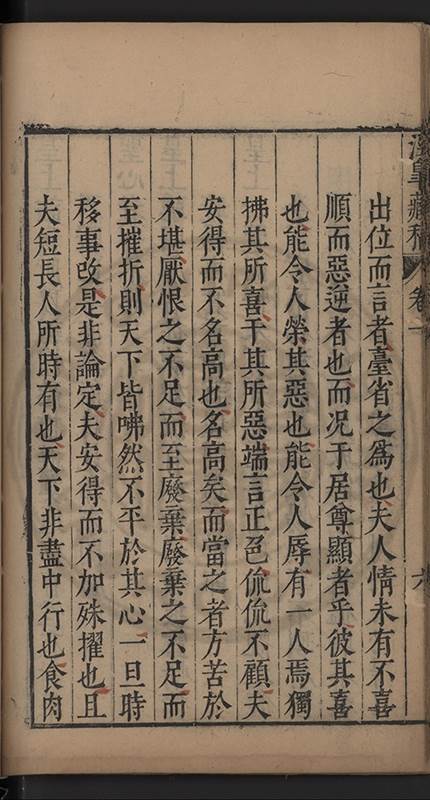 出位而言者臺省之爲也夫人情未有不喜
順而惡逆者也而况于居尊顯者乎彼其喜
也能令人榮其惡也能令人辱有一人焉獨
拂其所喜干其所惡端言正色侃侃不顧夫
安得而不名高也名高矣而當之者方苦於
不堪厭恨之不足而至廢棄廢棄之不足而
至摧折則天下皆咈然不平於其心一旦時
移事改是非論定夫安得而不加殊擢也且
夫短長人所時有也天下非盡中行也食肉
藏稿 卷一 六